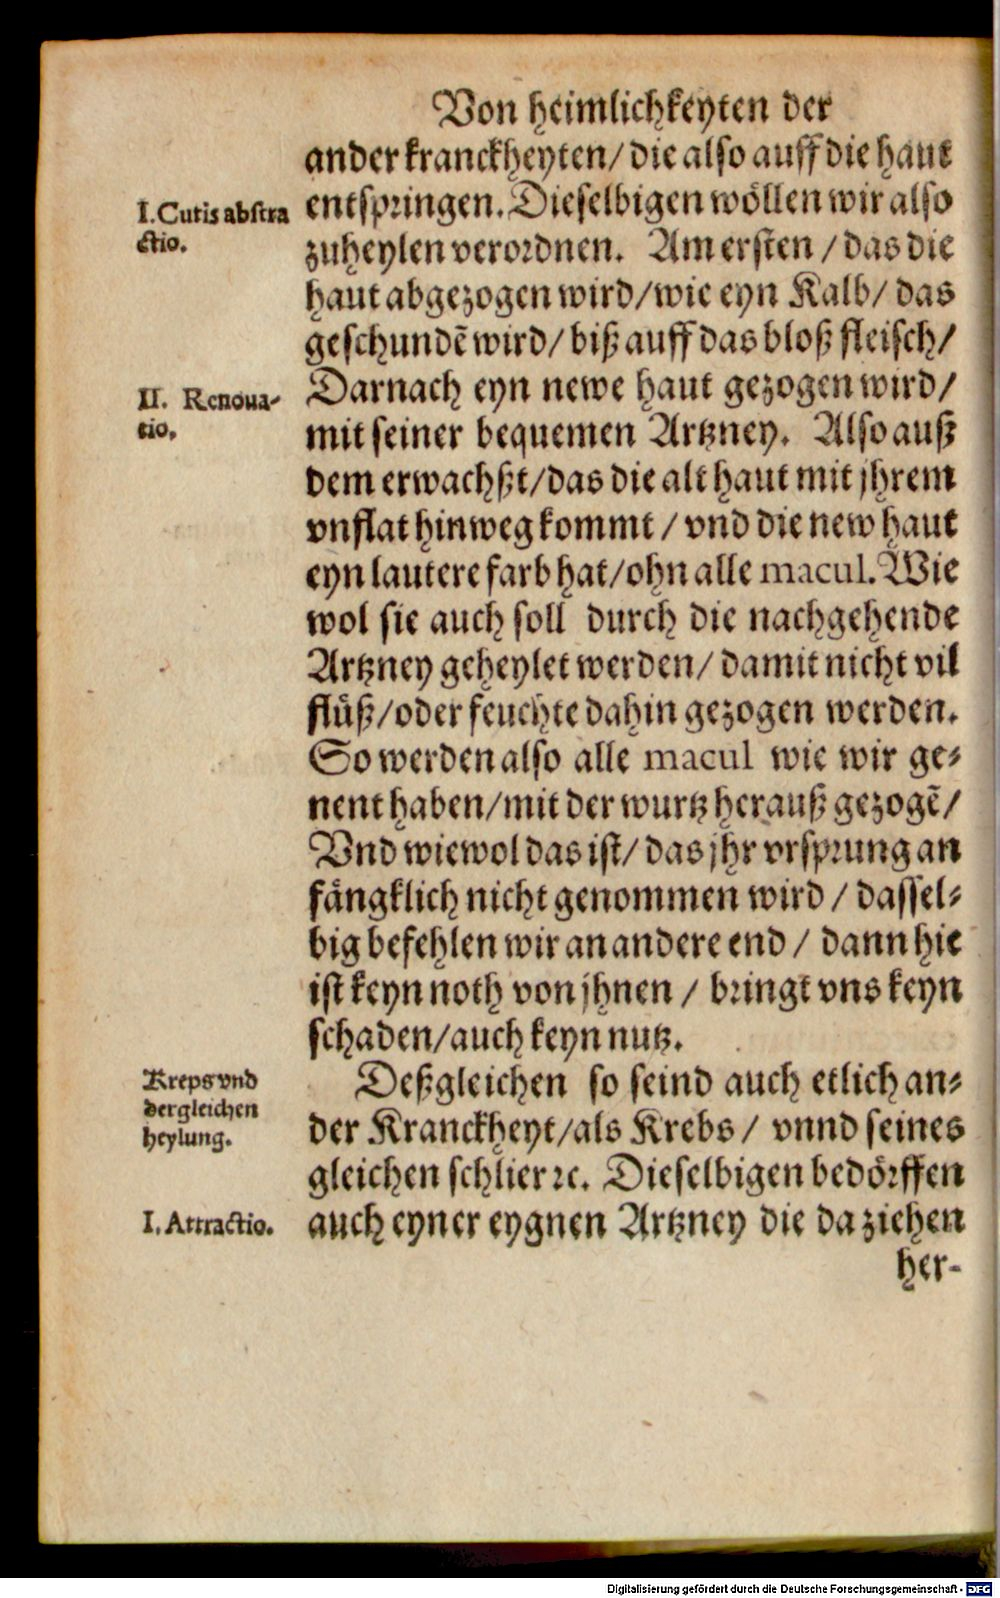 Von heimlichkeyten der
ander kranckheyten/ die also auff die haut
I. Cutis abstra
ctio.
entspringen. Dieselbigen wöllen wir also
zuheylen verordnen. Am ersten / das die
haut abgezogen wird/wie eyn Kalb/ das
geschundẽ wird/ biß auff das bloß fleisch/
II. Renoua-
tio.
Darnach eyn newe haut gezogen wird/
mit seiner bequemen Artzney. Also auß
dem erwachßt/das die alt haut mit jhrem
vnflat hinweg kommt / vnd die new haut
eyn lautere farb hat/ohn alle macul. Wie
wol sie auch soll durch die nachgehende
Artzney geheylet werden/ damit nicht vil
flüß/oder feuchte dahin gezogen werden.
So werden also alle macul wie wir ge-
nent haben/mit der wurtz herauß gezogẽ/
Vnd wiewol das ist/ das jhr vrsprung an
fängklich nicht genommen wird / dassel-
big befehlen wir an andere end / dann hie
ist keyn noth von jhnen / bringt vns keyn
schaden/auch keyn nutz.
Kreps vnd
dergleichen
heylung.
Deßgleichen so seind auch etlich an-
der Kranckheyt/als Krebs / vnnd seines
gleichen schlier ꝛc. Dieselbigen bedörffen
I. Attractio.
auch eyner eygnen Artzney die da ziehen
her-
Digitalisierung gefördert durch die Deutsche Forschungsgemeinschaft - DFG